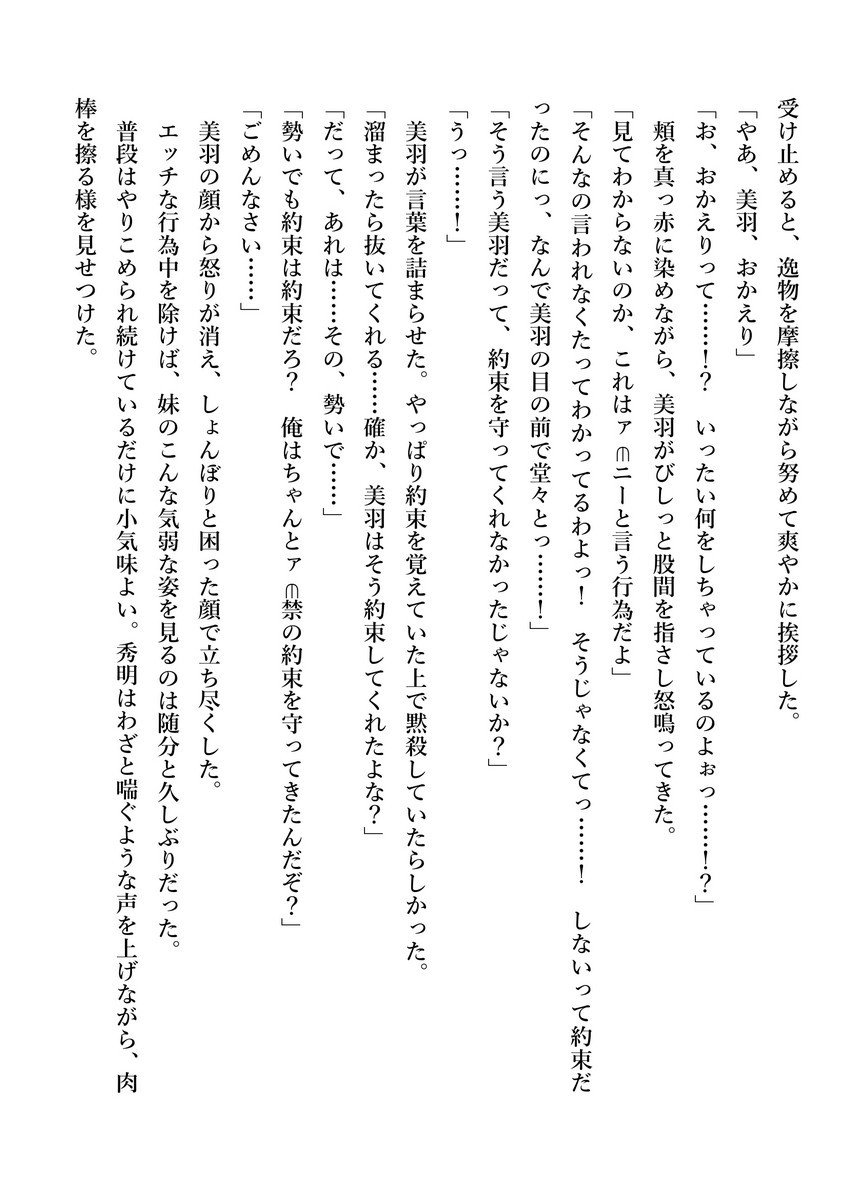 受け止めると、逸物を摩擦しながら努めて爽やかに挨拶した。
「やあ、美羽、おかえり」
「お、おかえりって……！？　いったい何をしちゃっているのよぉっ……！？」
　頬を真っ赤に染めながら、美羽がびしっと股間を指さし怒鳴ってきた。
「見てわからないのか、これはァ⋒ニーと言う行為だよ」
「そんなの言われなくたってわかってるわよっ！　そうじゃなくてっ……！　しないって約束だ
ったのにっ、なんで美羽の目の前で堂々とっ……！」
「そう言う美羽だって、約束を守ってくれなかったじゃないか？」
「うっ……！」
　美羽が言葉を詰まらせた。やっぱり約束を覚えていた上で黙殺していたらしかった。
「溜まったら抜いてくれる……確か、美羽はそう約束してくれたよな？」
「だって、あれは……その、勢いで……」
「勢いでも約束は約束だろ？　俺はちゃんとァ⋒禁の約束を守ってきたんだぞ？」
「ごめんなさい……」
　美羽の顔から怒りが消え、しょんぼりと困った顔で立ち尽くした。
　エッチな行為中を除けば、妹のこんな気弱な姿を見るのは随分と久しぶりだった。
　普段はやりこめられ続けているだけに小気味よい。秀明はわざと喘ぐような声を上げながら、肉
棒を擦る様を見せつけた。